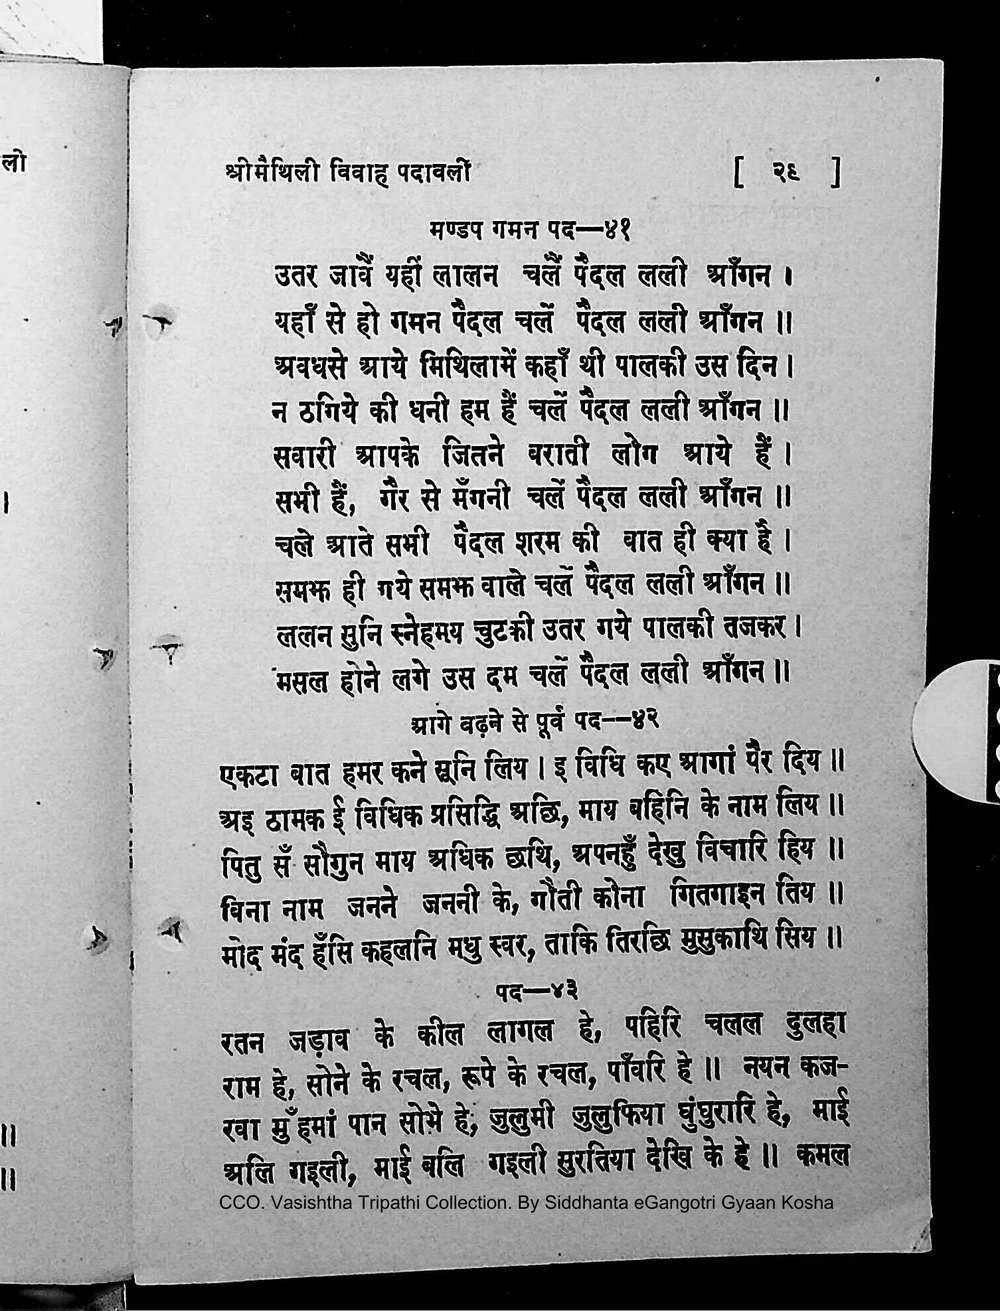 लो
श्रीमैथिली विवाह पदावली [ २९ ]
मण्डप गमन पद—४१
उतर जावैं यहीं लालन चलैं पैदल लली आँगन ।
यहाँ से हो गमन पैदल चलें पैदल लली आँगन ॥
अवधसे आये मिथिलामें कहाँ थी पालकी उस दिन ।
न ठगिये की धनी हम हैं चलें पैदल लली आँगन ॥
सवारी आपके जितने बराती लोग आये हैं ।
सभी हैं, गैर से मँगनी चलें पैदल लली आँगन ॥
चले आते सभी पैदल शरम की वात ही क्या है ।
समझ ही गये समझ वाले चलें पैदल लली आँगन ॥
ललन सुनि स्नेहमय चुटकी उतर गये पालकी तजकर ।
मसल होने लगे उस दम चलें पैदल लली आँगन ॥
आगे वढ़ने से पूर्व पद—४२
एकटा बात हमर कने सूनि लिय । इ विधि कए आगां पैर दिय ॥
अइ ठामक ई विधिक प्रसिद्धि अछि, माय बहिनि के नाम लिय ॥
पितु सँ सौगुन माय अधिक छथि, अपनहुँ देखु विचारि हिय ॥
विना नाम जनने जननी के, गौती कोना गितगाइन तिय ॥
मोद मंद हँसि कहलनि मधु स्वर, ताकि तिरछि मुसुकाथि सिय ॥
पद—४३
रतन जड़ाव के कील लागल हे, पहिरि चलल दुलहा
राम हे, सोने के रचल, रूपे के रचल, पाँवरि हे ॥ नयन कज-
रवा मुँहमां पान सोभे हे, जुलुमी जुलुफिया घुंघुरारि हे, माई
अलि गइली, माई बलि गइली सुरतिया देखि के हे ॥ कमल
CCO. Vasishtha Tripathi Collection. By Siddhanta eGangotri Gyaan Kosha
।
॥
॥